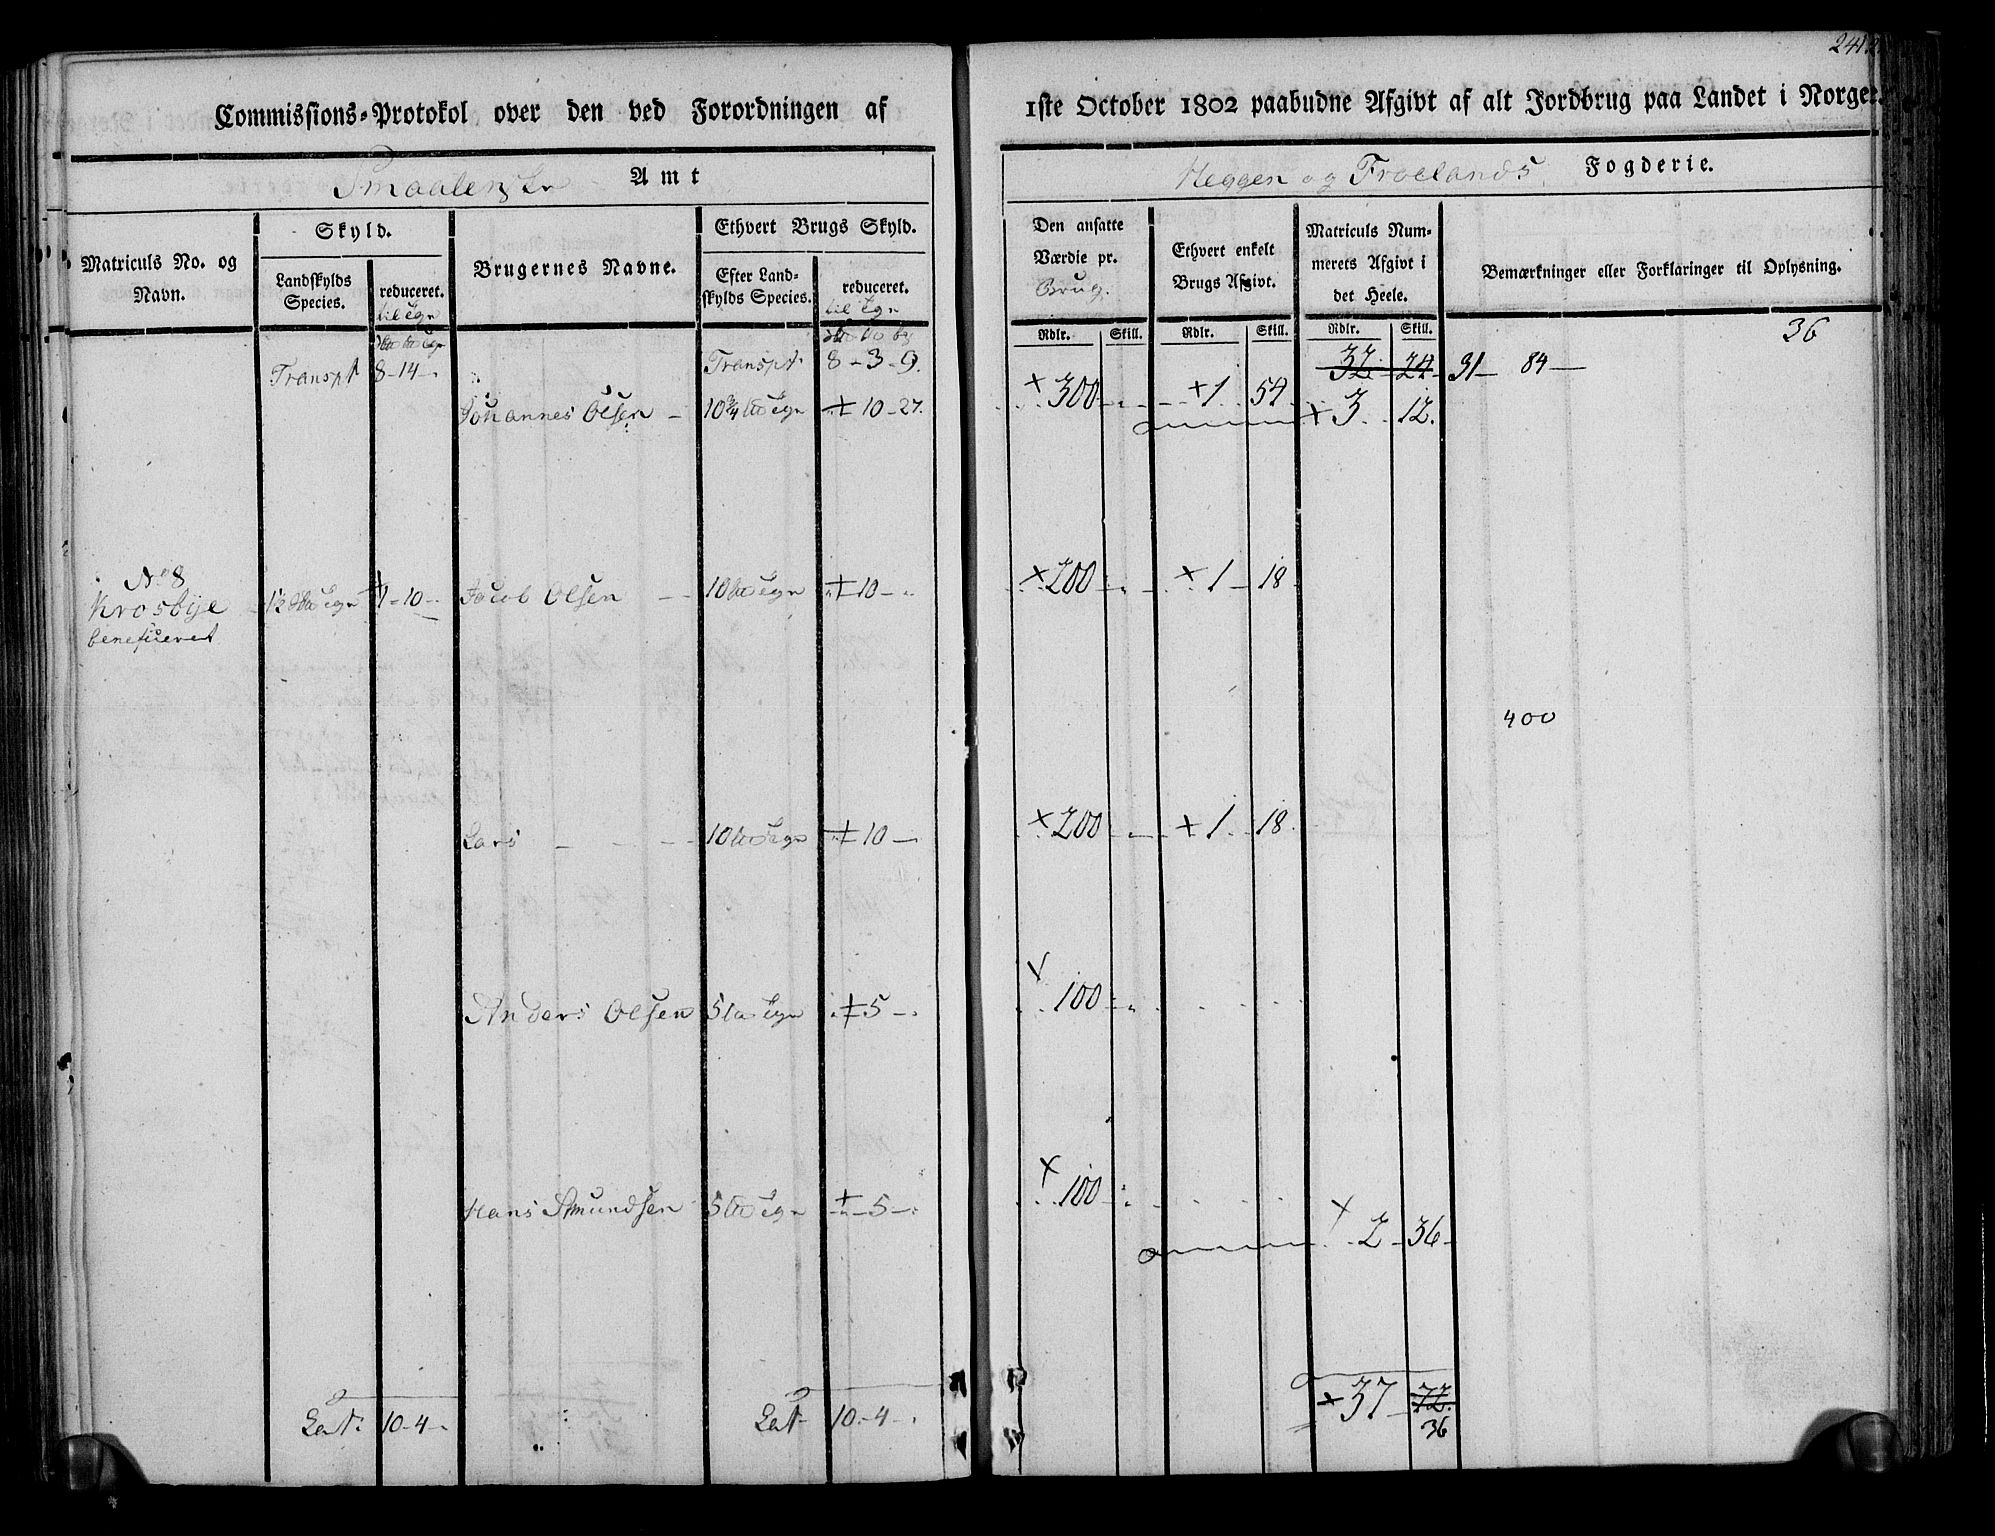 241
Commissions-Protokol over den ved Forordningen af 1ste October 1802 paabudne Afgivt af alt Jordbrug paa Landet i Norge.
Smaalenske Amt
Heggen og Froelands Fogderie.
Matriculs No. og Navn.
Skyld.
Landskylds Species.
reduceret.
Brugernes Navne.
Ethvert Brugs Skyld.
Efter Landskylds Species.
reduceret.
Den ansatte Værdie pr. Brug.
Ethvert enkelt Brugs Afgivt.
Matriculs Nummerets Afgivt i det Heele.
Bemærkninger eller Forklaringer til Oplysning.
Rdlr. Skill. Rdlr. Skill. Rdlr. Skill.
36
Transpt 8-14- Transpt 8-3-9. 32 24 31- 84-
Johannes Olsen - 10 3/4 10-27. × 300 +1 54 × 3 12.
No 8
Krosbye 1-10- Jacob Olsen 10 10- × 200 × 1 18
beneficeret
400
Lars - - - 10 10 - × 200 + 1 18
Anders Olsen 5 5 - × 100
Hans Amundsen 5 5 - × 100
× 2 36
Lat: 10-4- Lat 10-4- × 37 72
36